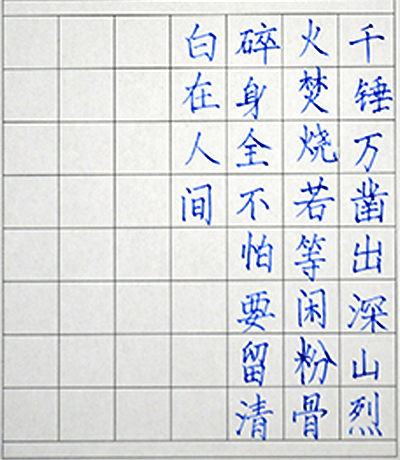 千锤万凿出深山烈
火焚烧若等闲粉骨
碎身全不怕要留清
白在人间